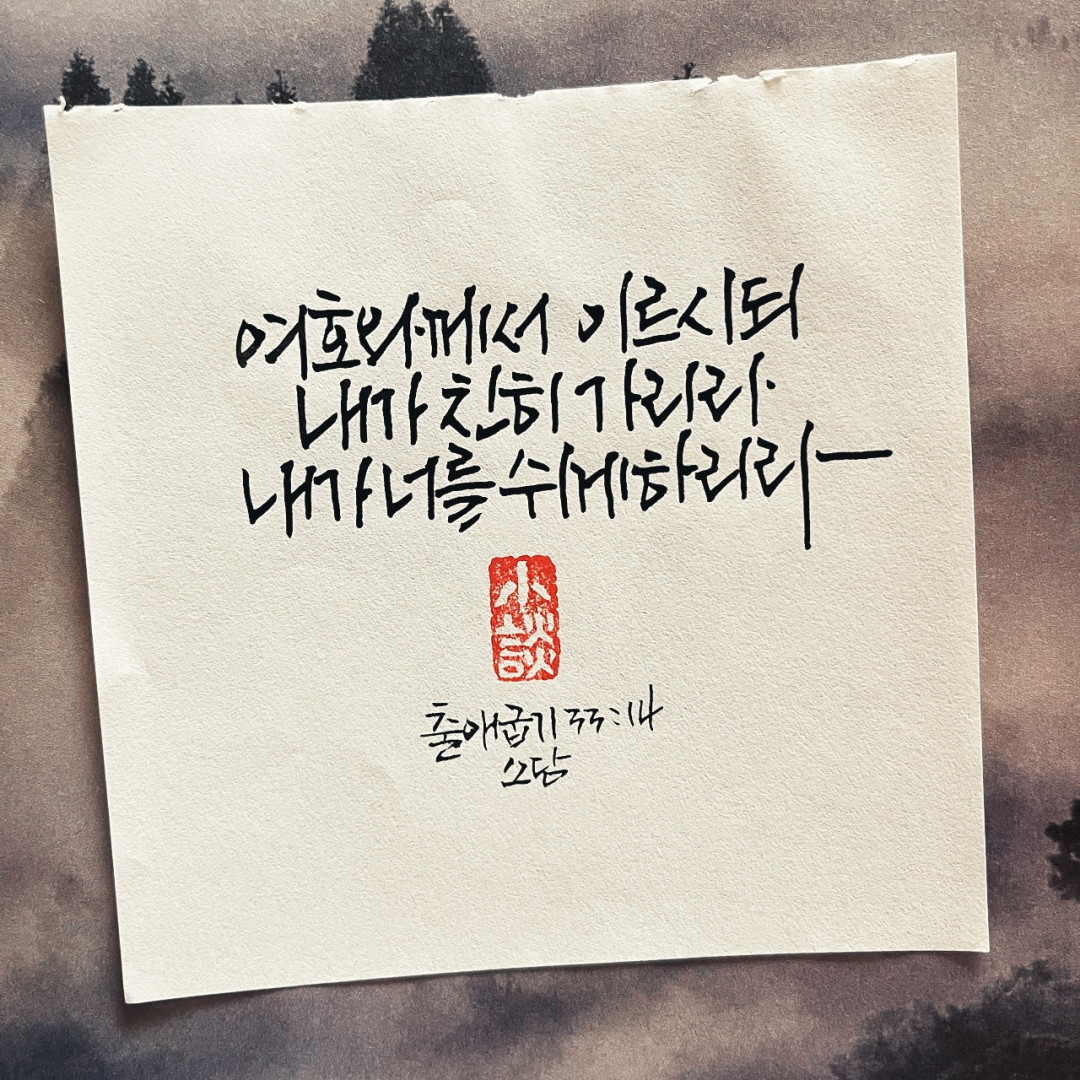 여호와께서 이르시되
내가 친히 가리라
내가 너를 쉬게하리라
小談
출애굽기 33:14
소담